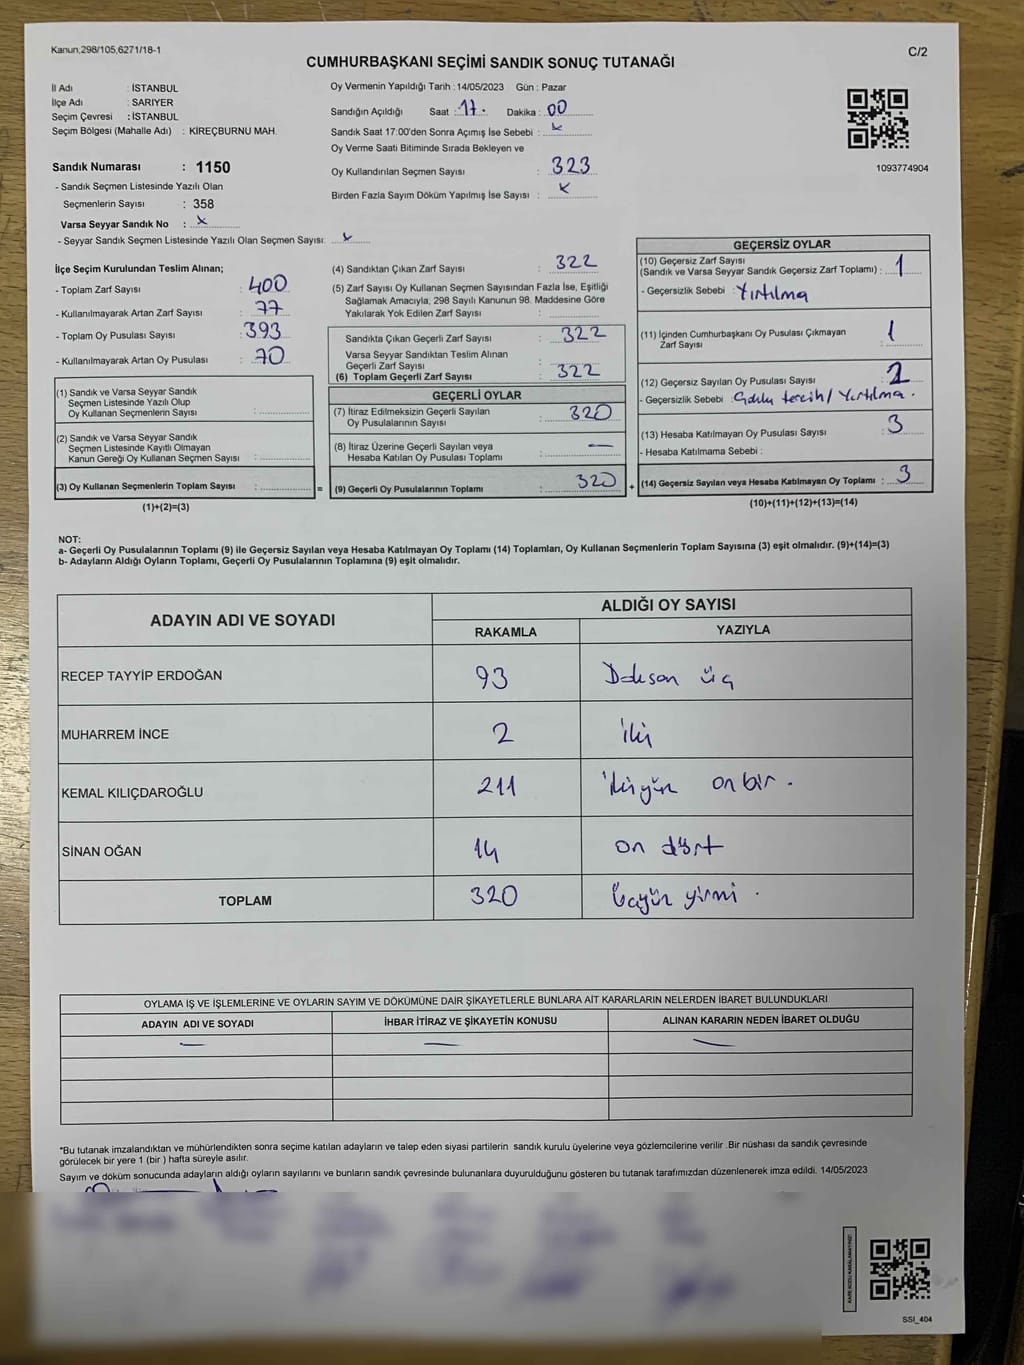 Kanun;298/105,6271/18-1
C/2
CUMHURBAŞKANI SEÇİMİ SANDIK SONUÇ TUTANAĞI
İl Adı : İSTANBUL
İlçe Adı : SARIYER
Seçim Çevresi : İSTANBUL
Seçim Bölgesi (Mahalle Adı) : KİREÇBURNU MAH.
Sandık Numarası : 1150
- Sandık Seçmen Listesinde Yazılı Olan
Seçmenlerin Sayısı : 358
Varsa Seyyar Sandık No : x
- Seyyar Sandık Seçmen Listesinde Yazılı Olan Seçmen Sayısı: x
Oy Vermenin Yapıldığı Tarih : 14/05/2023 Gün : Pazar
Sandığın Açıldığı Saat : 17. Dakika : 00
Sandık Saat 17:00'den Sonra Açımış İse Sebebi : x
Oy Verme Saati Bitiminde Sırada Bekleyen ve
Oy Kullandırılan Seçmen Sayısı : 323
Birden Fazla Sayım Döküm Yapılmış İse Sayısı : x
1093774904
İlçe Seçim Kurulundan Teslim Alınan;
- Toplam Zarf Sayısı : 400
- Kullanılmayarak Artan Zarf Sayısı : 77
- Toplam Oy Pusulası Sayısı : 393
- Kullanılmayarak Artan Oy Pusulası : 70
(1) Sandık ve Varsa Seyyar Sandık
Seçmen Listesinde Yazılı Olup
Oy Kullanan Seçmenlerin Sayısı :
(2) Sandık ve Varsa Seyyar Sandık
Seçmen Listesinde Kayıtlı Olmayan
Kanun Gereği Oy Kullanan Seçmen Sayısı :
(3) Oy Kullanan Seçmenlerin Toplam Sayısı :
(1)+(2)=(3)
=
(4) Sandıktan Çıkan Zarf Sayısı : 322
(5) Zarf Sayısı Oy Kullanan Seçmen Sayısından Fazla İse, Eşitliği
Sağlamak Amacıyla; 298 Sayılı Kanunun 98. Maddesine Göre
Yakılarak Yok Edilen Zarf Sayısı :
Sandıkta Çıkan Geçerli Zarf Sayısı : 322
Varsa Seyyar Sandıktan Teslim Alınan
Geçerli Zarf Sayısı :
(6) Toplam Geçerli Zarf Sayısı : 322
GEÇERLİ OYLAR
(7) İtiraz Edilmeksizin Geçerli Sayılan
Oy Pusulalarının Sayısı : 320
(8) İtiraz Üzerine Geçerli Sayılan veya
Hesaba Katılan Oy Pusulası Toplamı : —
(9) Geçerli Oy Pusulalarının Toplamı : 320
+
GEÇERSİZ OYLAR
(10) Geçersiz Zarf Sayısı
(Sandık ve Varsa Seyyar Sandık Geçersiz Zarf Toplamı) : 1
- Geçersizlik Sebebi : Yırtılma
(11) İçinden Cumhurbaşkanı Oy Pusulası Çıkmayan
Zarf Sayısı : 1
(12) Geçersiz Sayılan Oy Pusulası Sayısı : 2
- Geçersizlik Sebebi : tercih/ Yırtılma .
(13) Hesaba Katılmayan Oy Pusulası Sayısı : 3
- Hesaba Katılmama Sebebi :
(14) Geçersiz Sayılan veya Hesaba Katılmayan Oy Toplamı : 3
(10)+(11)+(12)+(13)=(14)
NOT:
a- Geçerli Oy Pusulalarının Toplamı (9) ile Geçersiz Sayılan veya Hesaba Katılmayan Oy Toplamı (14) Toplamları, Oy Kullanan Seçmenlerin Toplam Sayısına (3) eşit olmalıdır. (9)+(14)=(3)
b- Adayların Aldığı Oyların Toplamı, Geçerli Oy Pusulalarının Toplamına (9) eşit olmalıdır.
ADAYIN ADI VE SOYADI
ALDIĞI OY SAYISI
RAKAMLA YAZIYLA
RECEP TAYYİP ERDOĞAN 93 Doksan üç
MUHARREM İNCE 2 iki
KEMAL KILIÇDAROĞLU 211 ikiyüz on bir .
SİNAN OĞAN 14 on dört
TOPLAM 320 üçyüz yirmi .
OYLAMA İŞ VE İŞLEMLERİNE VE OYLARIN SAYIM VE DÖKÜMÜNE DAİR ŞİKAYETLERLE BUNLARA AİT KARARLARIN NELERDEN İBARET BULUNDUKLARI
ADAYIN ADI VE SOYADI İHBAR İTİRAZ VE ŞİKAYETİN KONUSU ALINAN KARARIN NEDEN İBARET OLDUĞU
— — —
*Bu tutanak imzalandıktan ve mühürlendikten sonra seçime katılan adayların ve talep eden siyasi partilerin sandık kurulu üyelerine veya gözlemcilerine verilir .Bir nüshası da sandık çevresinde
görülecek bir yere 1 (bir ) hafta süreyle asılır.
Sayım ve döküm sonucunda adayların aldığı oyların sayılarını ve bunların sandık çevresinde bulunanlara duyurulduğunu gösteren bu tutanak tarafımızdan düzenlenerek imza edildi. 14/05/2023
KARE KODU KARALAMAYINIZ!
SSI_404